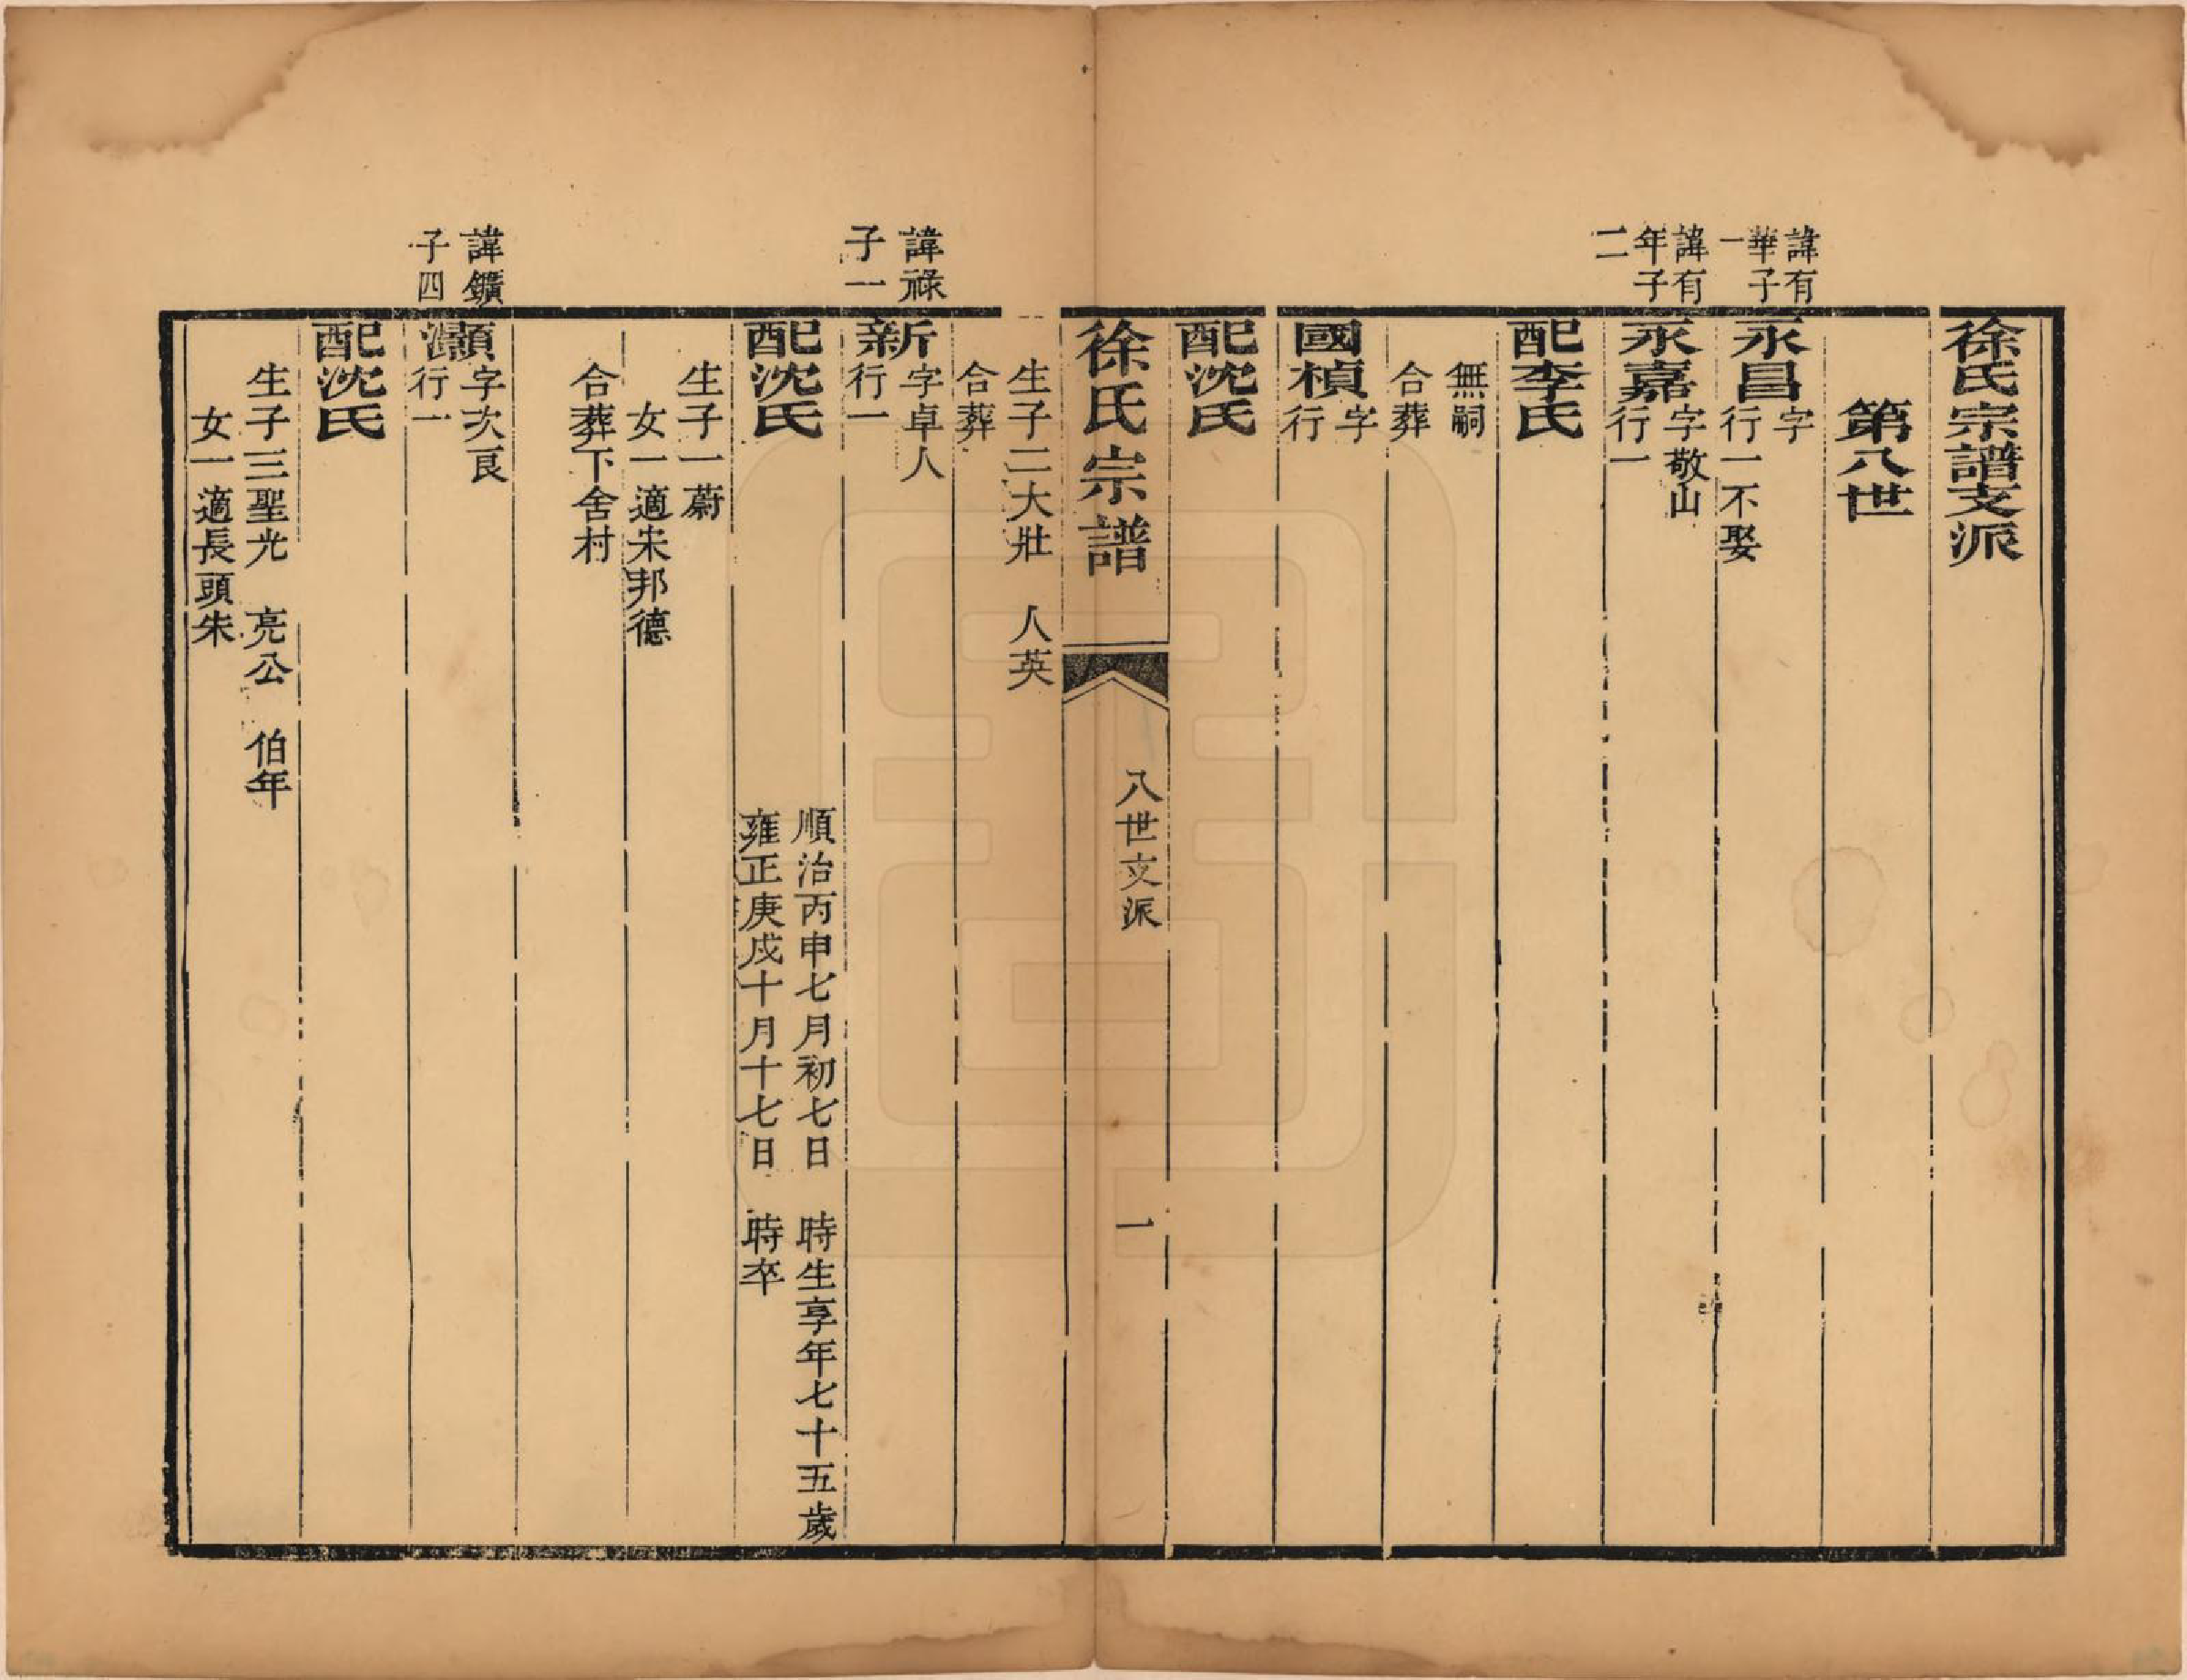 徐氏宗譜支派
第八世
諱有
華子
一
永昌
字
行一不娶
諱有
年子
二
永嘉
字敬山
行一
配李氏
無嗣
合葬
國楨
字
行
配沈氏
徐氏宗譜
八世支派
一
生子二大壯 人英
合葬
諱祿
子一
新
字卓人
行一
順治丙申七月初七日 時生享年七十五歲
雍正庚戌十月十七日 時卒
配沈氏
生子一蔚
女一適宋邦德
合葬下舍村
諱鑛
子四
灝
字次良
行一
配沈氏
生子三聖光 亮公 伯年
女一適長頭朱